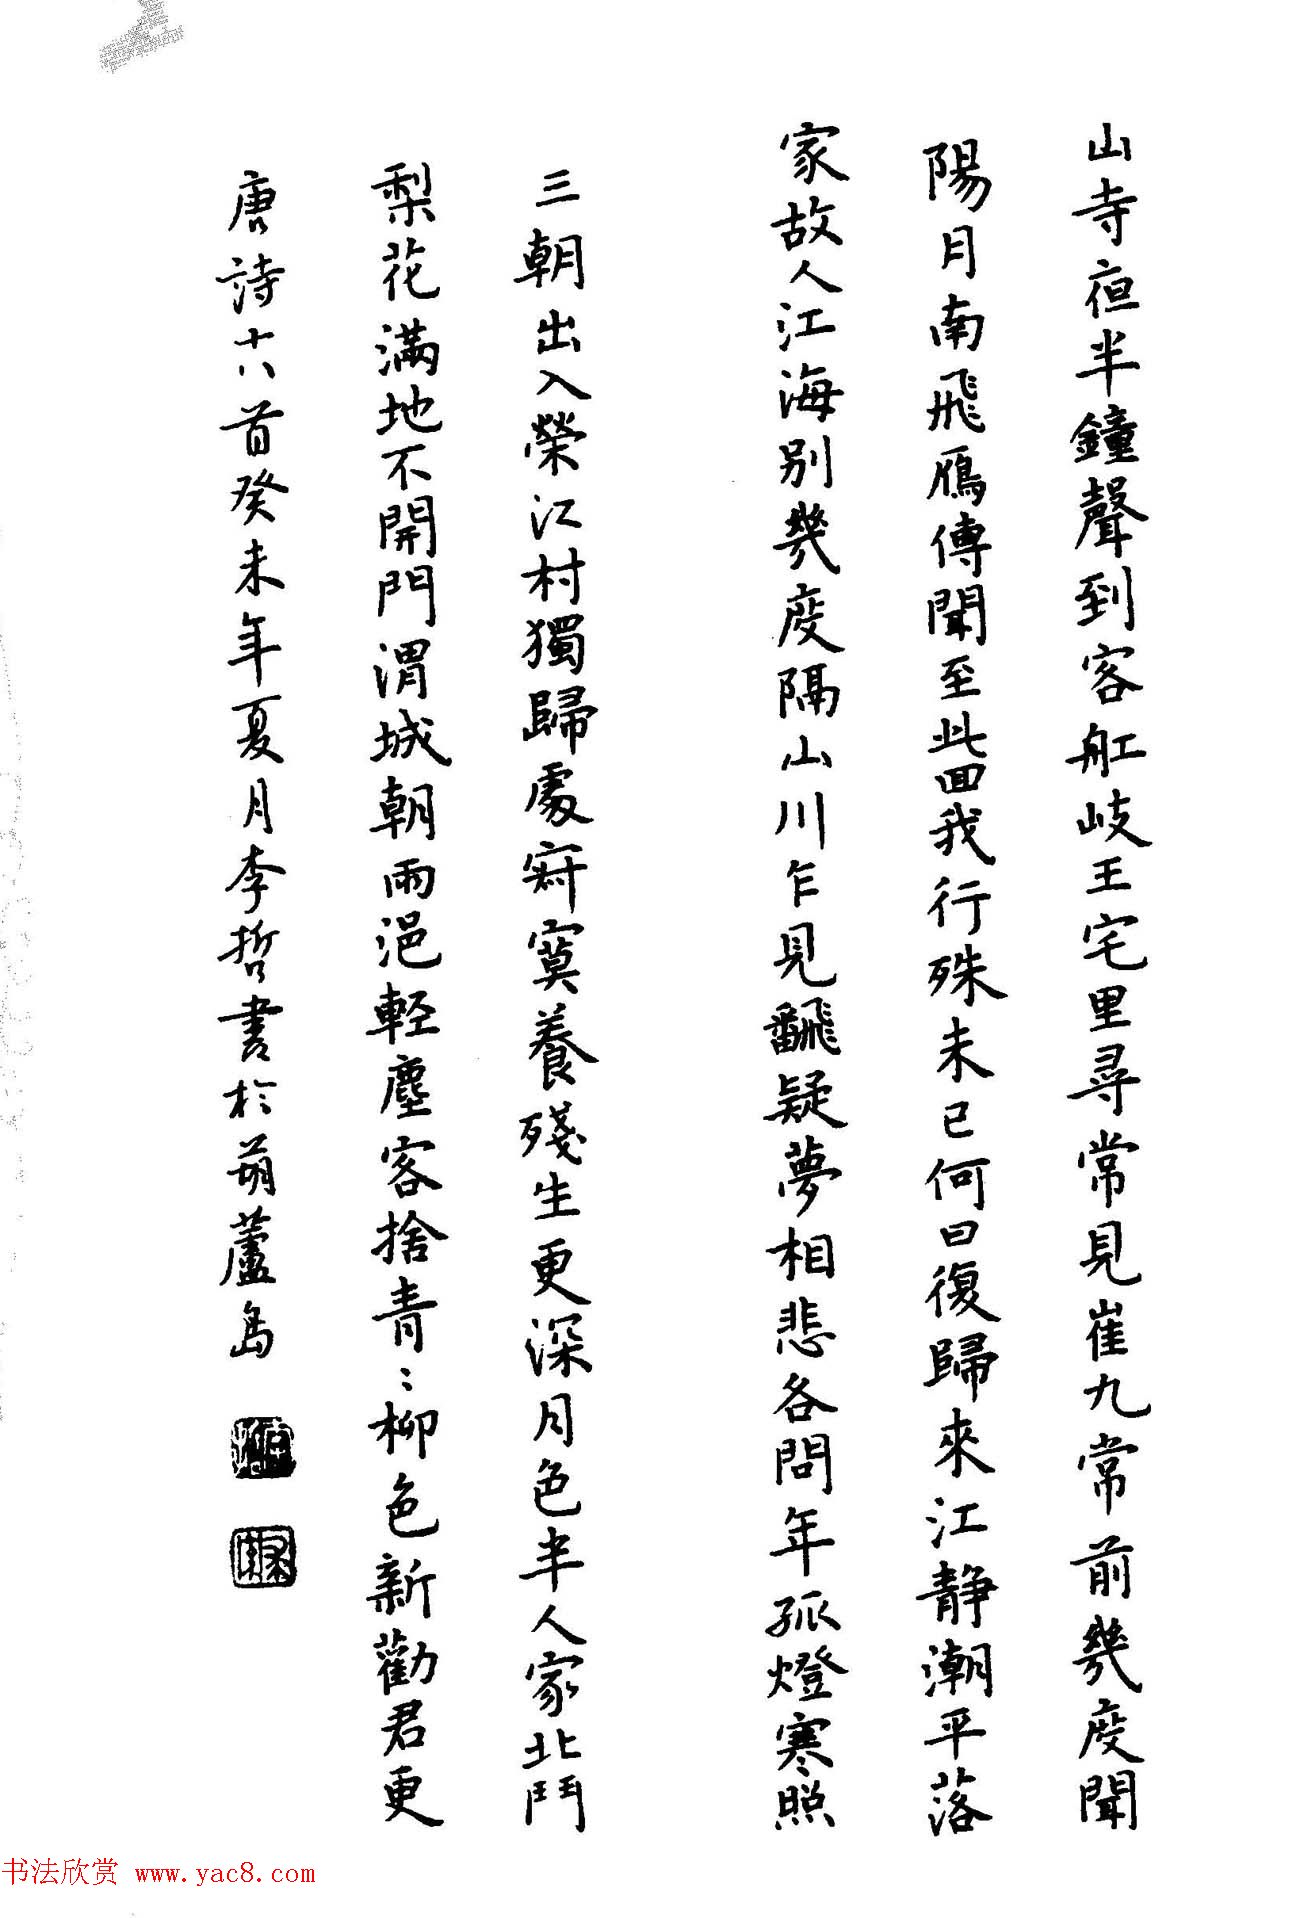 山寺夜半鐘聲到客舡岐王宅里尋常見崔九常前幾度聞
陽月南飛雁傳聞至此回我行殊未已何日復歸來江静潮平落
家故人江海別幾度隔山川乍見飜疑夢相悲各問年孤燈寒照
三朝出入榮江村獨歸處寂寞養殘生更深月色半人家北鬥
梨花滿地不開門渭城朝雨浥輕塵客捨青〻柳色新勸君更
唐詩十八首癸未年夏月李哲書於葫蘆島
书法欣赏 www.yac8.com